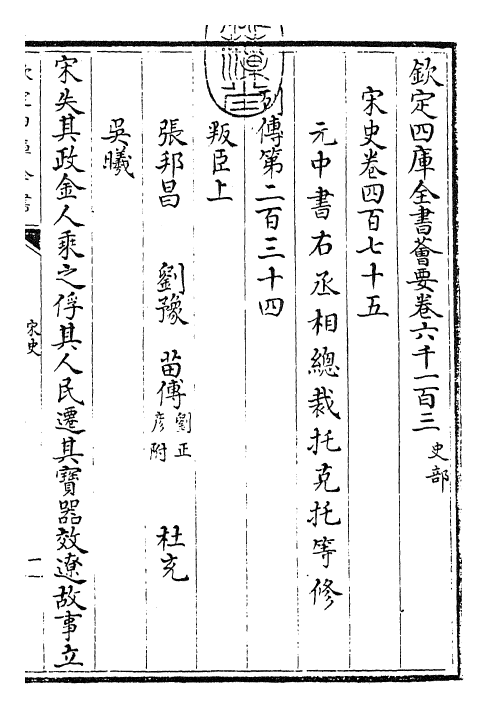 欽定四庫全書薈要卷六千一百三 史部
宋史卷四百七十五
元中書右丞相總裁托克托等修
列傳第二百三十四
叛臣上
張邦昌 劉豫 苗傅 劉正彥附 杜充
吳曦
宋失其政金人乘之俘其人民遷其寶器效遼故事立
宋史
一